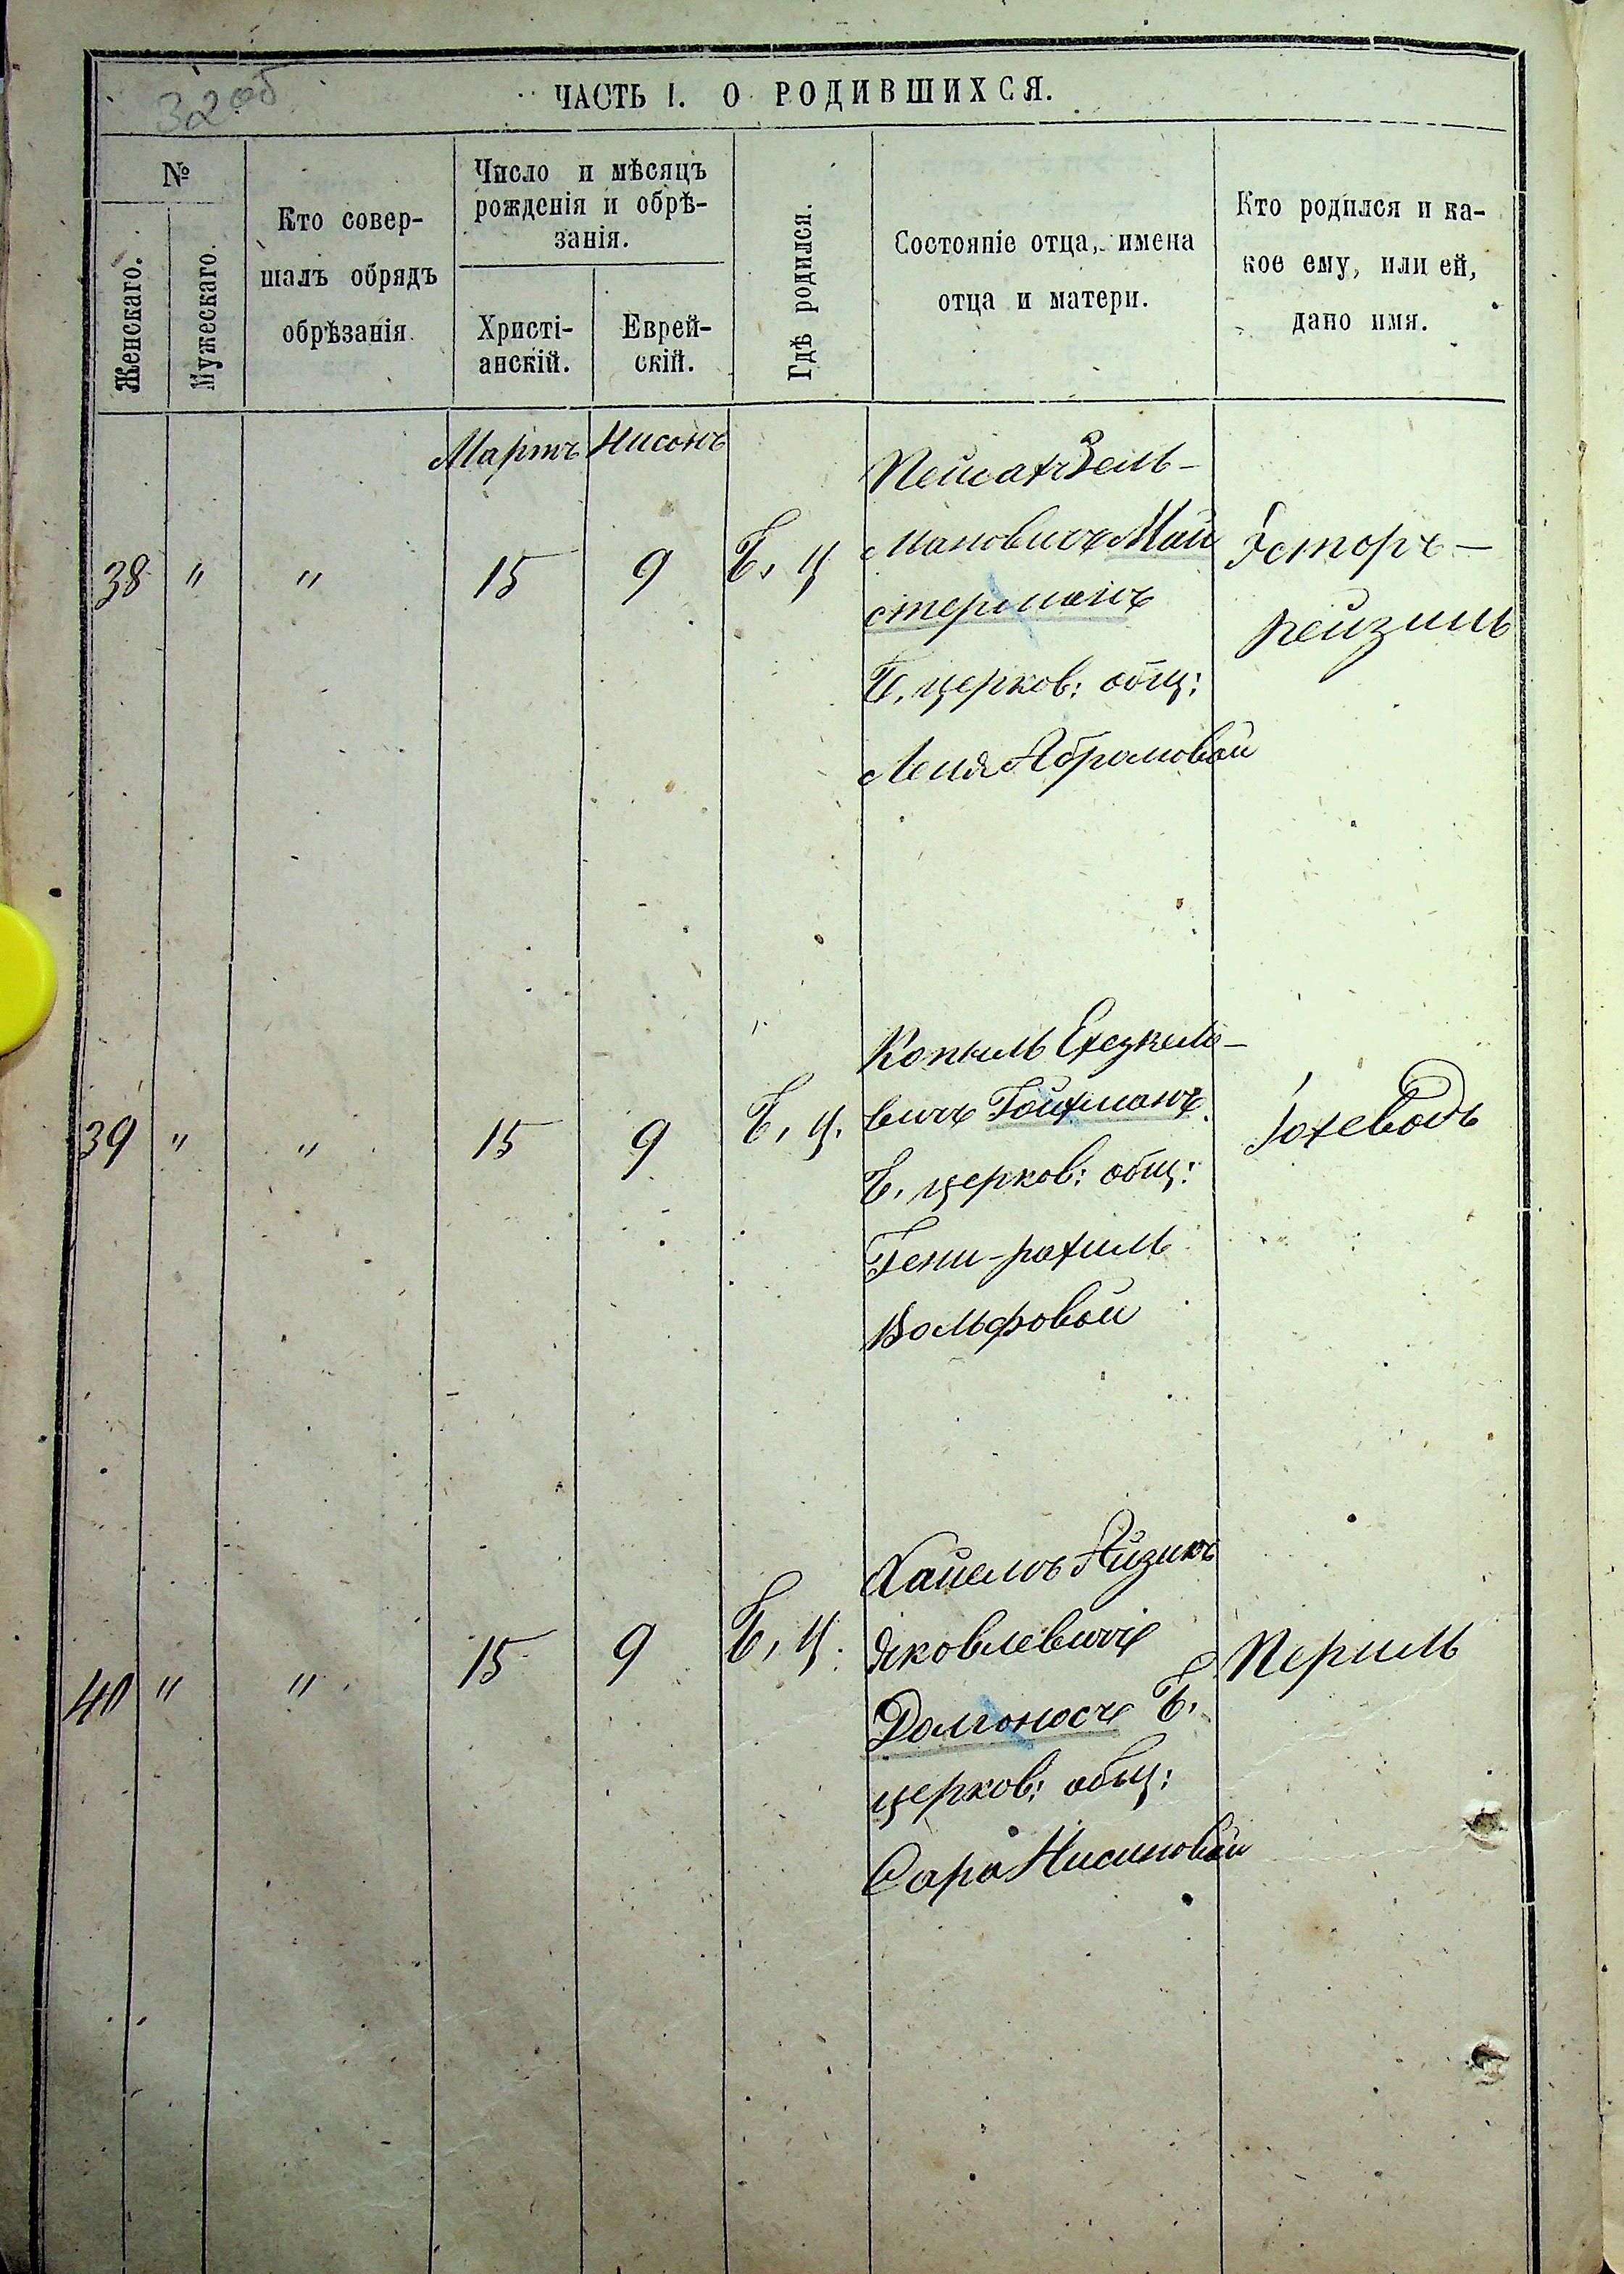 32 об
ЧАСТЬ I. О РОДИВШИХСЯ.
№
Женскаго.
Мужескаго.
Кто совер-
шалъ обрядъ
обрѣзанія.
Число и мѣсяцъ
рожденія и обрѣ-
занія.
Христі-
анскій.
Еврей-
скій.
Гдѣ родился.
Состояніе отца, имена
отца и матери.
Кто родился и ка-
кое ему, или ей,
дано имя.
Мартъ Нисонъ
38 " " 15 9 Б. Ц
Пейсах Зель-
мановичъ Май
стерманъ
Б. церков: общ:
Лея Абрамовой
Эстеръ-
Рейзиль
39 " " 15 9 Б. Ц.
Копыль Ехезкель-
вичъ Гойхманъ
Б. церков: общ:
Гени-рахиль
Вольфовой
Іохеводъ
40 " " 15 9 Б. Ц.
Айзикъ
Яковлевичъ
Долгоносъ Б.
церков: общ:
Сара Нисиновой
Періль